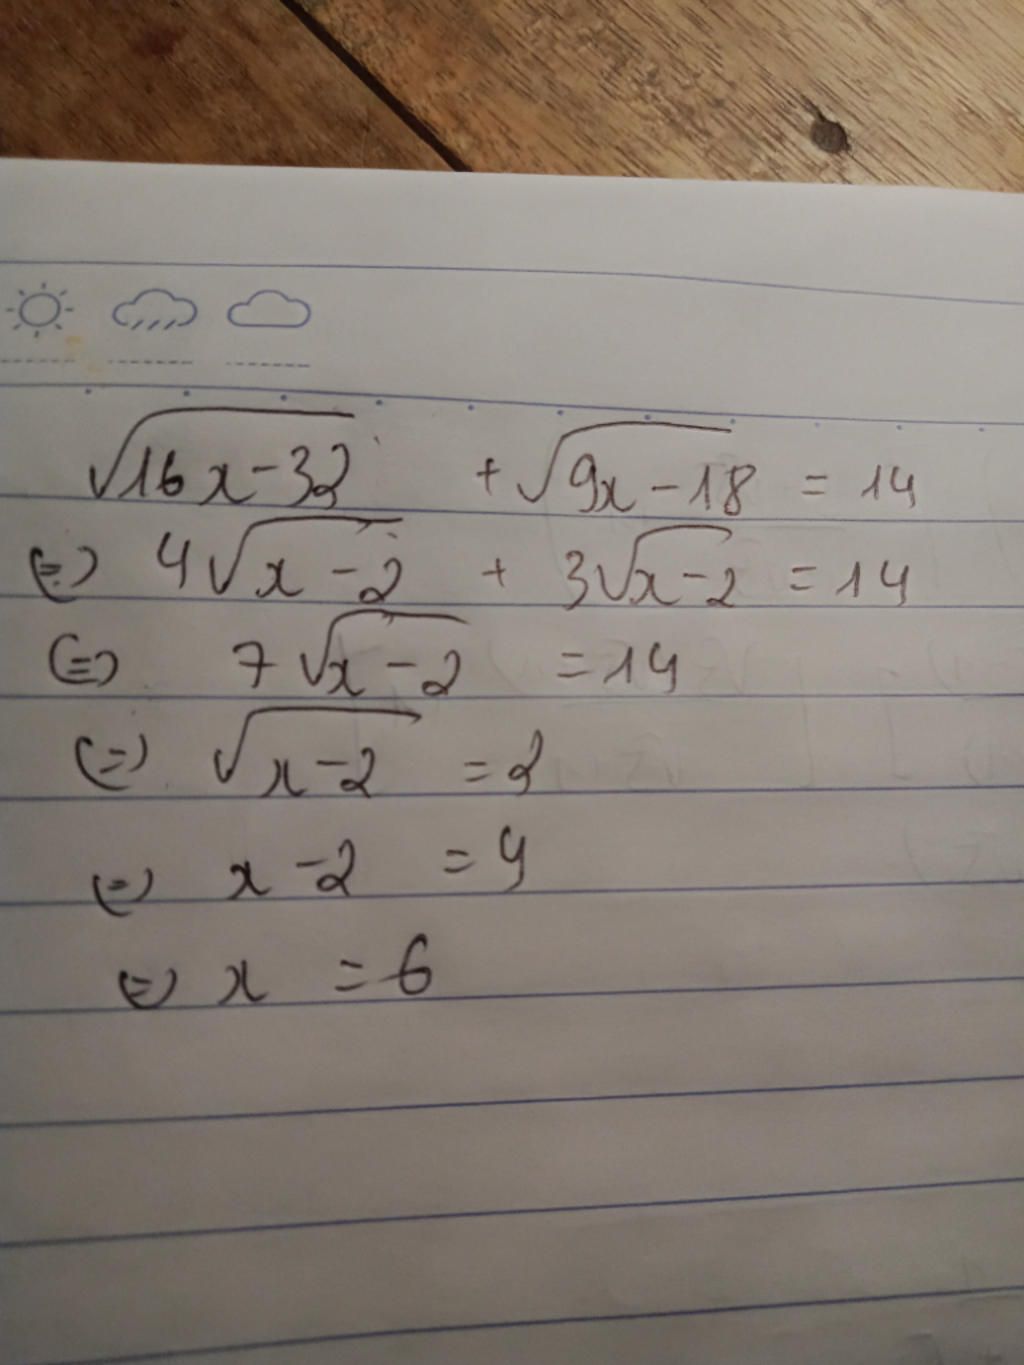 √(16x-32) + √(9x-18) = 14
(=) 4√(x-2) + 3√(x-2) = 14
(=) 7√(x-2) = 14
(=) √(x-2) = 2
(=) x-2 = 4
(=) x = 6